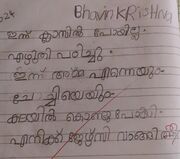 024
Bhavin KRiSHNA
ഇന്ന് ക്ലാസിൽ പോയില്ല.
എഴുതി പഠിച്ചു.
ഇന്ന് അമ്മ എന്നെയും
ചേച്ചിയെയും
കടയിൽ കൊണ്ടു പോയി.
എനിക്ക് ജേഴ്സി വാങ്ങി